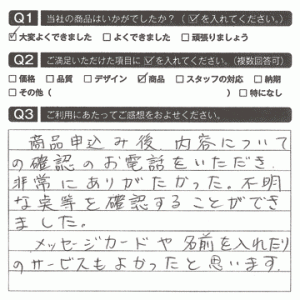 Q1 当社の商品はいかがでしたか？（☑を入れてください。）
☑大変よくできました □よくできました □頑張りましょう
Q2 ご満足いただけた項目に☑を入れてください。（複数回答可）
□価格 □品質 □デザイン ☑商品 □スタッフの対応 □納期
□その他（ ） □特になし
Q3 ご利用にあたってご感想をおよせください。
商品申込み後、内容について
の確認のお電話をいただき、
非常にありがたかった。不明
な点等を確認することができ
ました。
メッセージカードや名前を入れたり
のサービスもよかったと思います。